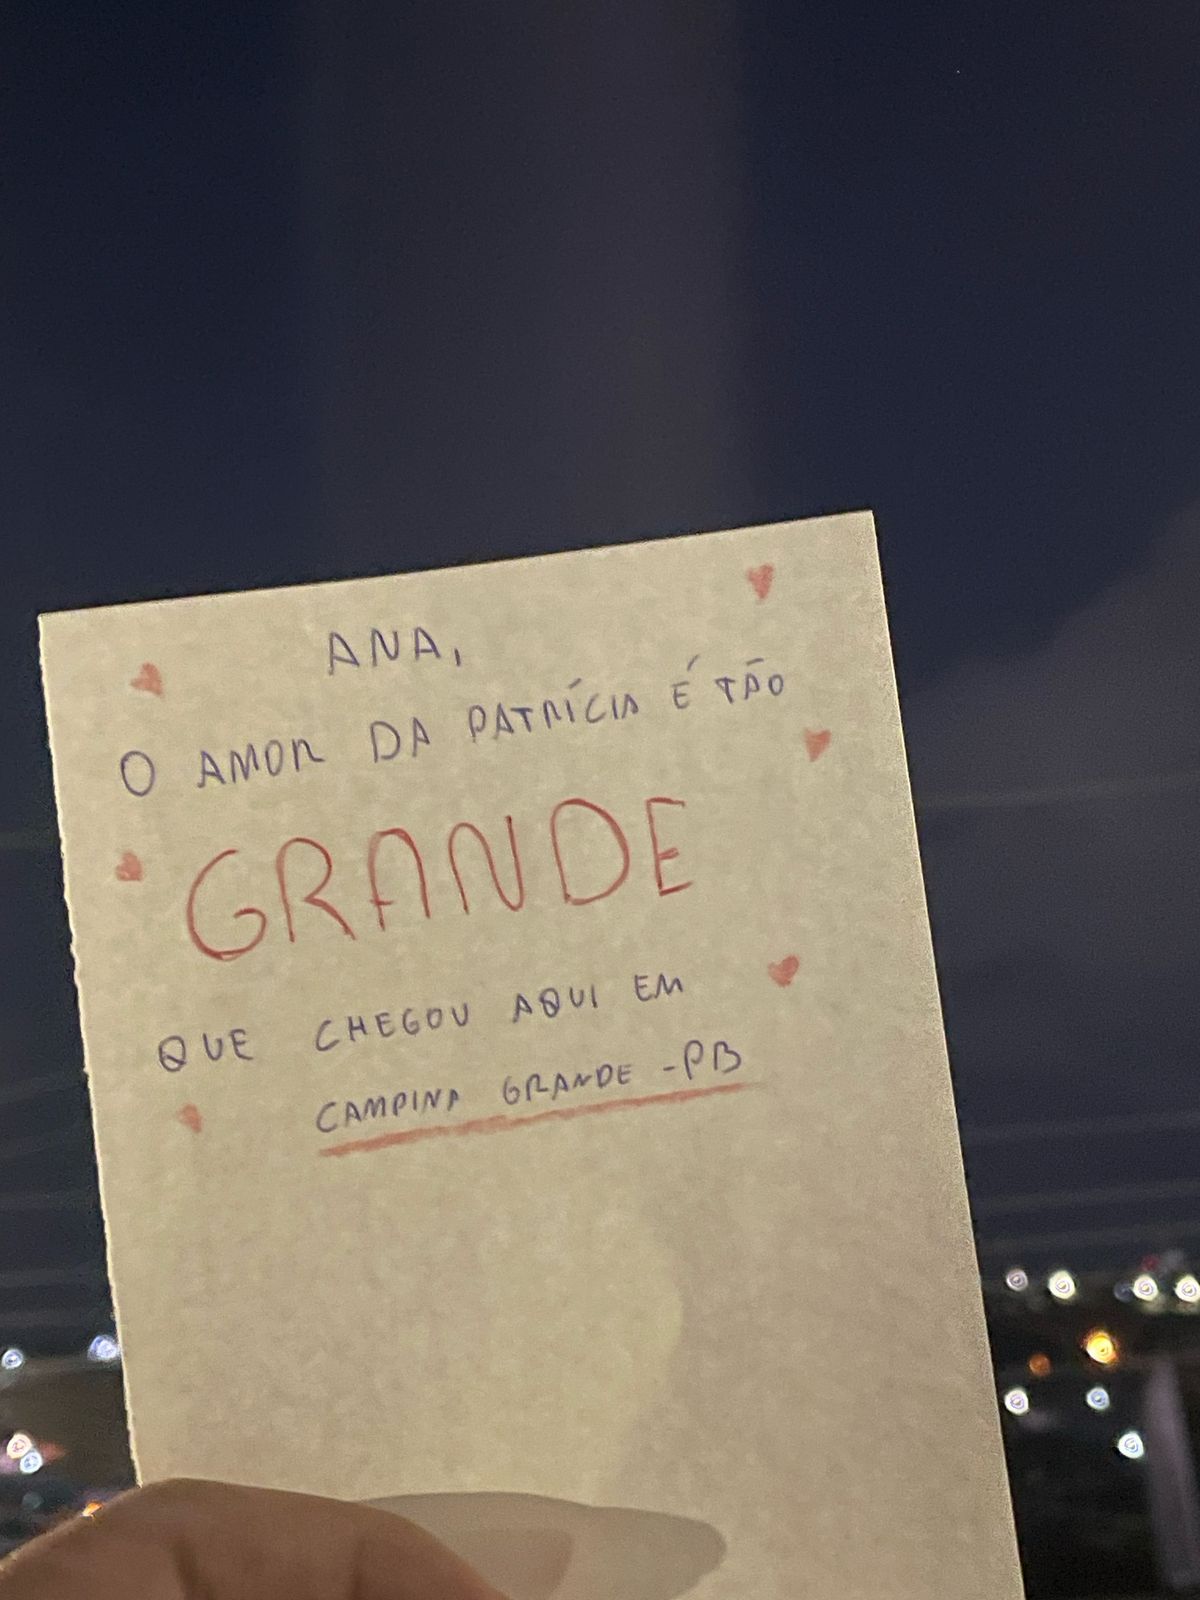 ANA,
O AMOR DA PATRÍCIA É TÃO
GRANDE
QUE CHEGOU AQUI EM
CAMPINA GRANDE - PB